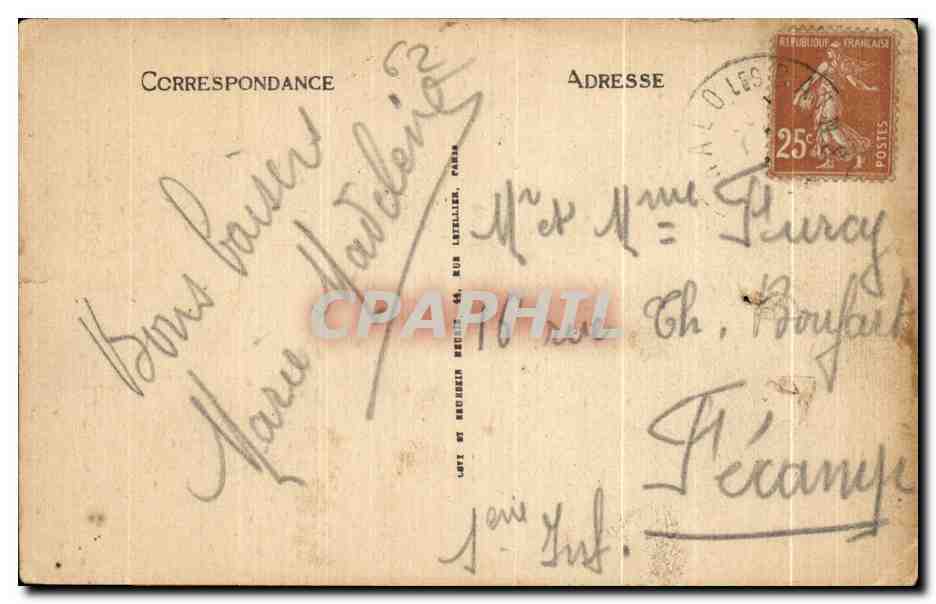 CORRESPONDANCE
ADRESSE
REPUBLIQUE FRANÇAISE
25c
POSTES
62
Bons baisers
Marie Madeleine
LEVY ET NEURDEIN REUNIS 44, RUE LETELLIER, PARIS
CPAPHIL
Mr et Mme = Flurcy
16 rue Th. Boufart
Fécamp
Seine Inf.